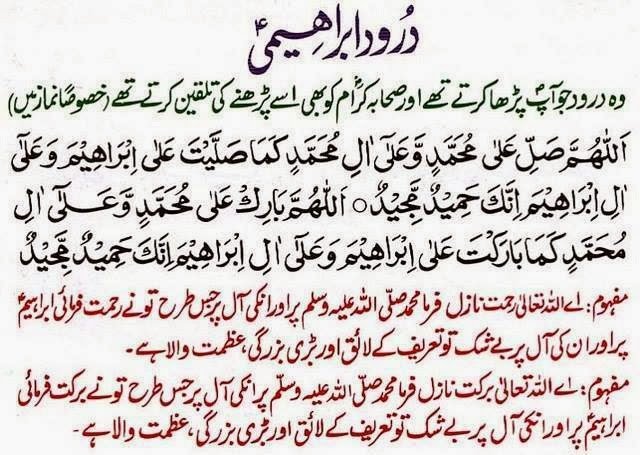 درود ابراھیمیؑ
وہ درود جو آپؐ پڑھا کرتے تھے اور صحابہ کرامؓ کو بھی اسے پڑھنے کی تلقین کرتے تھے (خصوصاً نماز میں)
اَللّٰهُمَّ صَلِّ عَلٰی مُحَمَّدٍ وَّعَلٰٓی اٰلِ مُحَمَّدٍ كَمَا صَلَّيْتَ عَلٰٓی اِبْرَاهِيْمَ وَعَلٰٓی
اٰلِ اِبْرَاهِيْمَ اِنَّكَ حَمِيْدٌ مَّجِيْدٌ ○ اَللّٰهُمَّ بَارِكْ عَلٰی مُحَمَّدٍ وَّعَلٰٓی اٰلِ
مُحَمَّدٍ كَمَا بَارَكْتَ عَلٰٓی اِبْرَاهِيْمَ وَعَلٰٓی اٰلِ اِبْرَاهِيْمَ اِنَّكَ حَمِيْدٌ مَّجِيْدٌ
مفہوم: اے اللہ تعالٰی رحمت نازل فرما محمد صلّی اللہ علیہ وسلم پر اور انکی آل پر جس طرح تونے رحمت فرمائی ابراہیمؑ
پر اور ان کی آل پر بے شک تو تعریف کے لائق اور بڑی بزرگی، عظمت والا ہے ۔
مفہوم: اے اللہ تعالٰی برکت نازل فرما محمد صلّی اللہ علیہ وسلّم پر انکی آل پر جس طرح تونے برکت فرمائی
ابراہیمؑ پر اور انکی آل پر بے شک تو تعریف کے لائق اور بڑی بزرگی، عظمت والا ہے ۔